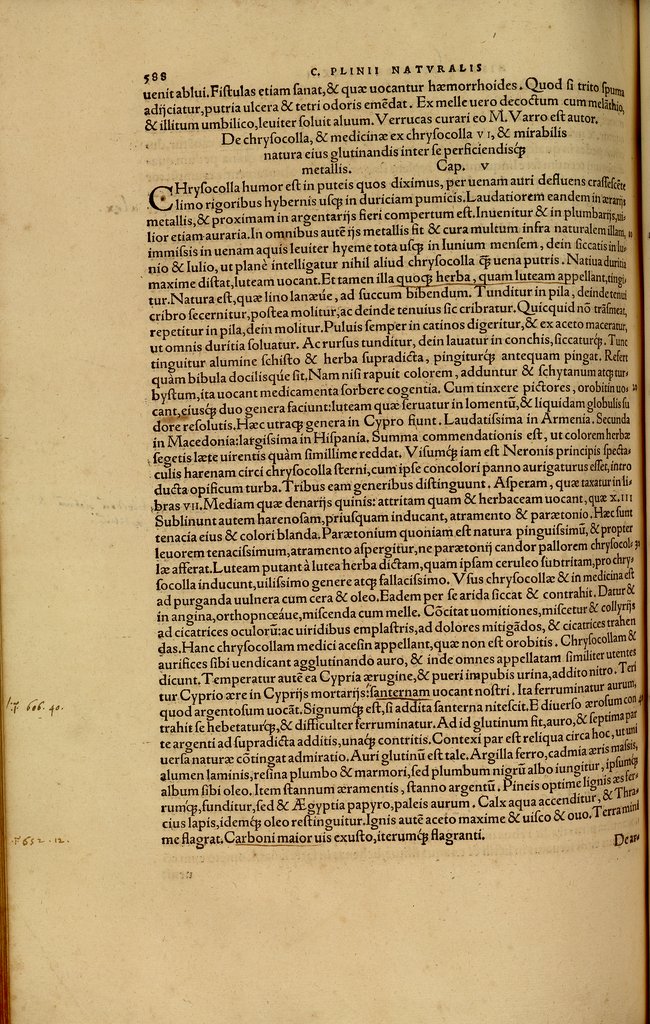 588
C. PLINII NATVRALIS
uenit ablui. Fistulas etiam sanat, & quæ uocantur hæmorrhoides. Quod si trito spuma
adijciatur, putria ulcera & tetri odoris emēdat. Ex melle uero decoctum cum melāthio,
& illitum umbilico, leuiter soluit aluum. Verrucas curari eo M. Varro est autor.
De chrysocolla, & medicinæ ex chrysocolla VI, & mirabilis
natura eius glutinandis inter se perficiendisq́;
metallis. Cap. V
CHrysocolla humor est in puteis quos diximus, per uenam auri defluens crassescēte
limo rigoribus hybernis usq; in duriciam pumicis. Laudatiorem eandem in ærarijs
metallis, & proximam in argentarijs fieri compertum est. Inuenitur & in plumbarijs, ui-
lior etiam auraria. In omnibus autē ijs metallis fit & cura multum infra naturalem illam,
immissis in uenam aquis leuiter hyeme tota usq; in Iunium mensem, dein siccatis in Iu-
nio & Iulio, ut planè intelligatur nihil aliud chrysocolla q̃; uena putris. Natiua duritia
maxime distat, luteam uocant. Et tamen illa quoq; herba, quam luteam appellant, tingi-
tur. Natura est, quæ lino lanæúe, ad succum bibendum. Tunditur in pila, deinde tenui
cribro secernitur, postea molitur, ac deinde tenuius sic cribratur. Quicquid nō trāsmeat,
repetitur in pila, dein molitur. Puluis semper in catinos digeritur, & ex aceto maceratur,
ut omnis duritia soluatur. Ac rursus tunditur, dein lauatur in conchis, siccaturq́;. Tunc
tinguitur alumine schisto & herba supradicta, pingiturq́; antequam pingat. Refert
quàm bibula docilisq́ue sit. Nam nisi rapuit colorem, adduntur & schytanum atq; tur-
bystum, ita uocant medicamenta sorbere cogentia. Cum tinxere pictores, orobitin uo- 20
cant, eiusq́; duo genera faciunt: luteam quæ seruatur in lomentū, & liquidam globulis su
dore resolutis. Hæc utraq; genera in Cypro fiunt. Laudatissima in Armenia. Secunda
in Macedonia: largissima in Hispania. Summa commendationis est, ut colorem herbæ
segetis læte uirentis quàm simillime reddat. Visumq́; iam est Neronis principis specta-
culis harenam circi chrysocolla sterni, cum ipse concolori panno aurigaturus esset, intro
ducta opificum turba. Tribus eam generibus distinguunt. Asperam, quæ taxatur in li-
bras VII. Mediam quæ denarijs quinis: attritam quam & herbaceam uocant, quæ X. III
Sublinunt autem harenosam, priusquam inducant, atramento & parætonio. Hæc sunt
tenacia eius & colori blanda. Parætonium quoniam est natura pinguissimū, & propter
leuorem tenacissimum, atramento aspergitur, ne parætonij candor pallorem chrysocol- 30
læ afferat. Luteam putant à lutea herba dictam, quam ipsam ceruleo subtritam, pro chry-
socolla inducunt, uilissimo genere atq; fallacissimo. Vsus chrysocollæ & in medicina est
ad purganda uulnera cum cera & oleo. Eadem per se arida siccat & contrahit. Datur &
in angina, orthopnœáue, miscenda cum melle. Cōcitat uomitiones, miscetur & collyrijs
ad cicatrices oculorū: ac uiridibus emplastris, ad dolores mitigādos, & cicatrices trahen
das. Hanc chrysocollam medici acesin appellant, quæ non est orobitis. Chrysocollam &
aurifices sibi uendicant agglutinando auro, & inde omnes appellatam similiter utentes
dicunt. Temperatur autē ea Cypria ærugine, & pueri impubis urina, addito nitro. Teri
tur Cyprio ære in Cyprijs mortarijs: santernam uocant nostri. Ita ferruminatur aurum,
quod argentosum uocāt. Signumq́; est, si addita santerna nitescit. E diuerso ærosum con
trahit se hebetaturq́;, & difficulter ferruminatur. Ad id glutinum fit, auro, & septima par
te argenti ad supradicta additis, unaq́; contritis. Contexi par est reliqua circa hoc, ut uni
uersa naturæ cōtingat admiratio. Auri glutinū est tale. Argilla ferro, cadmia æris massis,
alumen laminis, resina plumbo & marmori, sed plumbum nigrū albo iungitur, ipsumq́;
album sibi oleo. Item stannum æramentis, stanno argentū. Pineis optime lignis æs fer-
rumq́;, funditur, sed & Ægyptia papyro, paleis aurum. Calx aqua accenditur, & Thra-
cius lapis, idemq́; oleo restinguitur. Ignis autē aceto maxime & uisco & ouo. Terra mini
me flagrat. Carboni maior uis exusto, iterumq́; flagranti.
De ar-
606. 40.
652. 12.